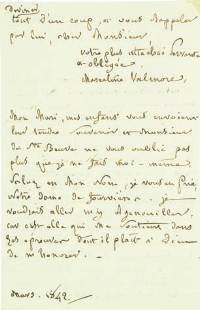 Deviner
tout d'un coup, à vous rappeler
par lui, cher Monsieur,
votre plus attachée servante
et obligée
Marceline Valmore.
Mon Mari, mes enfans vous envoient
leur tendre souvenir et Monsieur
de Ste Beuve ne vous oublie pas
plus que je ne fais moi-même.
Saluez en Mon Nom, je vous en Prie,
votre dame de fourvières. je
voudrais aller m'y Agenouiller.
car c'est elle qui me soutient dans
les épreuves dont il plaît à Dieu
de m'honorer.
mars. 1842.